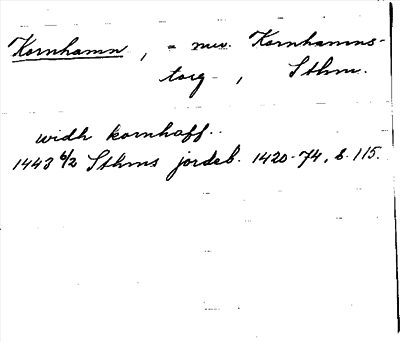 Kornhamn, = nuv. Kornhamns-
torg-, Sthm.
widh kornhaff..
1443 6/2 Sthms jordeb. 1420-74, s. 115.